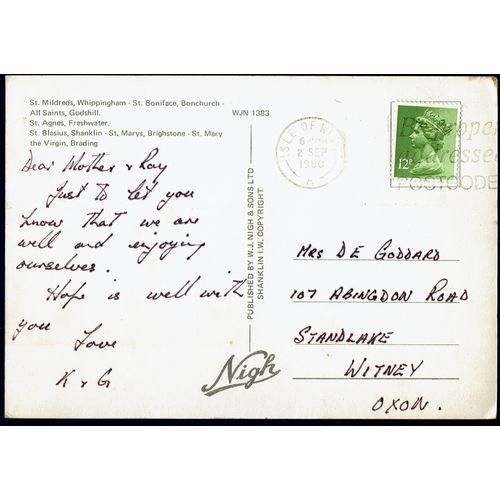 St. Mildreds, Whippingham - St. Boniface, Bonchurch -
All Saints, Godshill.
St. Agnes, Freshwater.
St. Blasius, Shanklin - St. Marys, Brighstone - St. Mary
the Virgin, Brading
WJN 1383
Dear Mother & Ray
Just to let you
know that we are
well and enjoying
ourselves.
Hope is well with
you
Love
K & G
PUBLISHED BY W.J. NIGH & SONS LTD
SHANKLIN I.W. COPYRIGHT
Nigh
ISLE OF
6
2 SEP
1980
A
12P
POSTCODE
MRS DE GODDARD
107 ABINGDON ROAD
STANDLAKE
WITNEY
OXON.